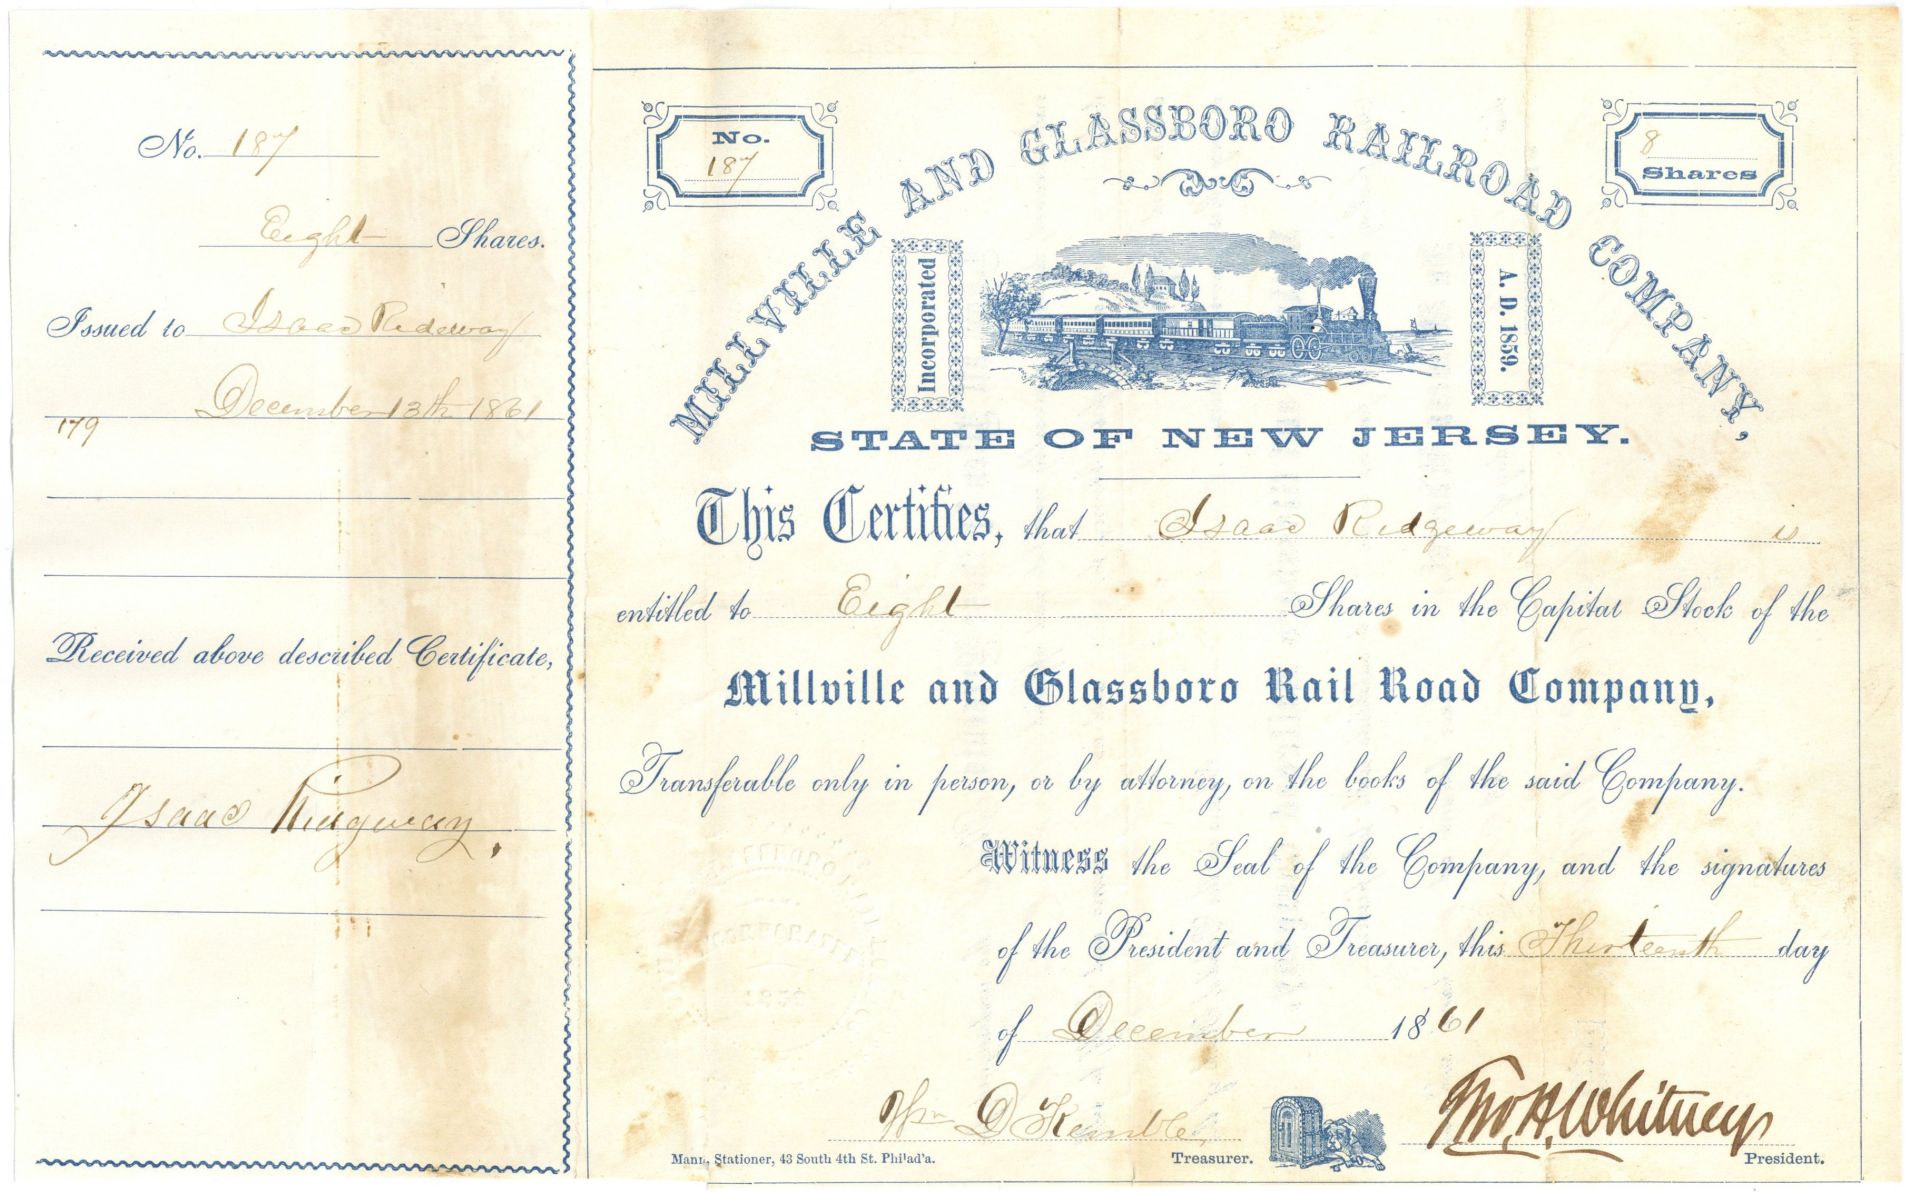 No. 187
Eight Shares.
Issued to Isaac Ridgway
December 13th 1861
179
Received above described Certificate,
Isaac Ridgway.
No.
187
MILLVILLE AND GLASSBORO RAILROAD COMPANY,
8
Shares
Incorporated
A. D. 1859.
STATE OF NEW JERSEY.
This Certifies, that Isaac Ridgeway is
entitled to Eight Shares in the Capital Stock of the
Millville and Glassboro Rail Road Company,
Transferable only in person, or by attorney, on the books of the said Company.
Witness the Seal of the Company, and the signatures
of the President and Treasurer, this Thirteenth day
of December 1861
Wm D Kemble
Tho. H. Whitney
Mann, Stationer, 43 South 4th St. Philad'a.
Treasurer.
President.